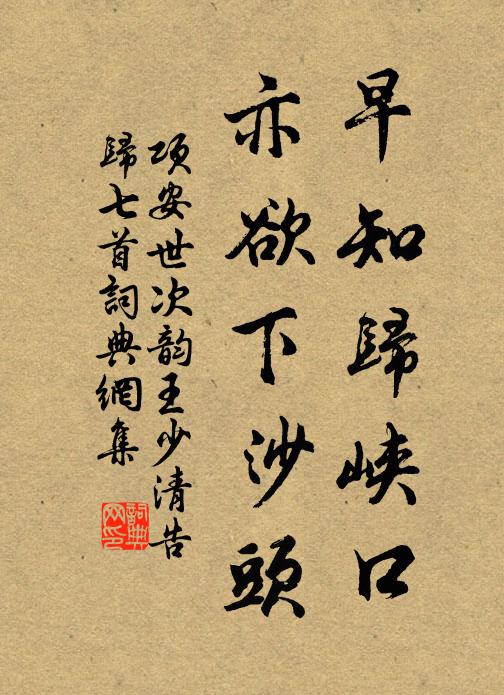 早知歸峽口
亦欲下沙頭
項安世次韵王少清告
歸七首詞典網集
詞典网印